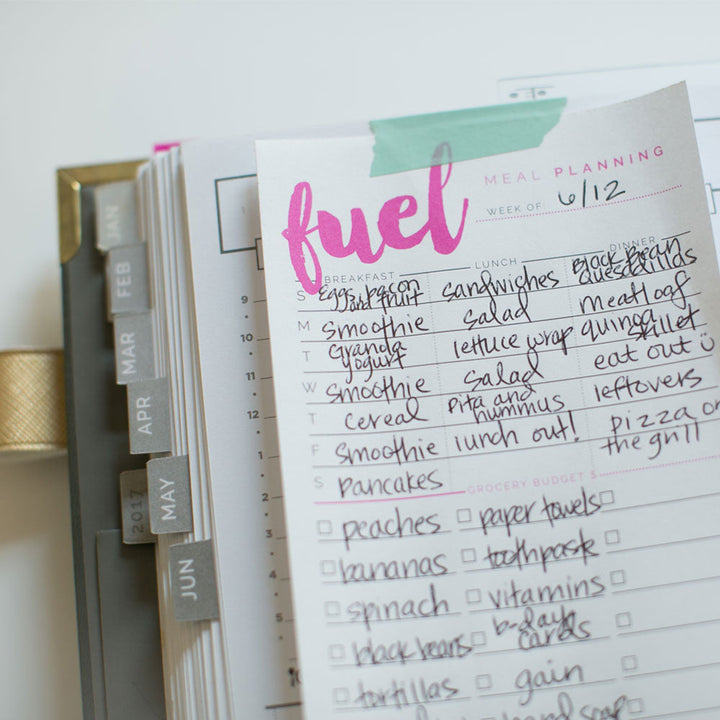 fuel
MEAL PLANNING
WEEK OF 6/12
BREAKFAST LUNCH DINNER
S Eggs, bacon and fruit sandwiches Black Bean Quesadillas
M smoothie salad meatloaf
T Granola yogurt lettuce wrap quinoa skillet
W smoothie salad eat out
T cereal pita and hummus leftovers
F smoothie lunch out! pizza on the grill
S pancakes
GROCERY BUDGET $
peaches paper towels
bananas toothpaste
spinach vitamins
black beans b-day cards
tortillas gain
hand soap
JAN
FEB
MAR
APR
2017
MAY
JUN
9
10
11
12
1
2
3
4
5